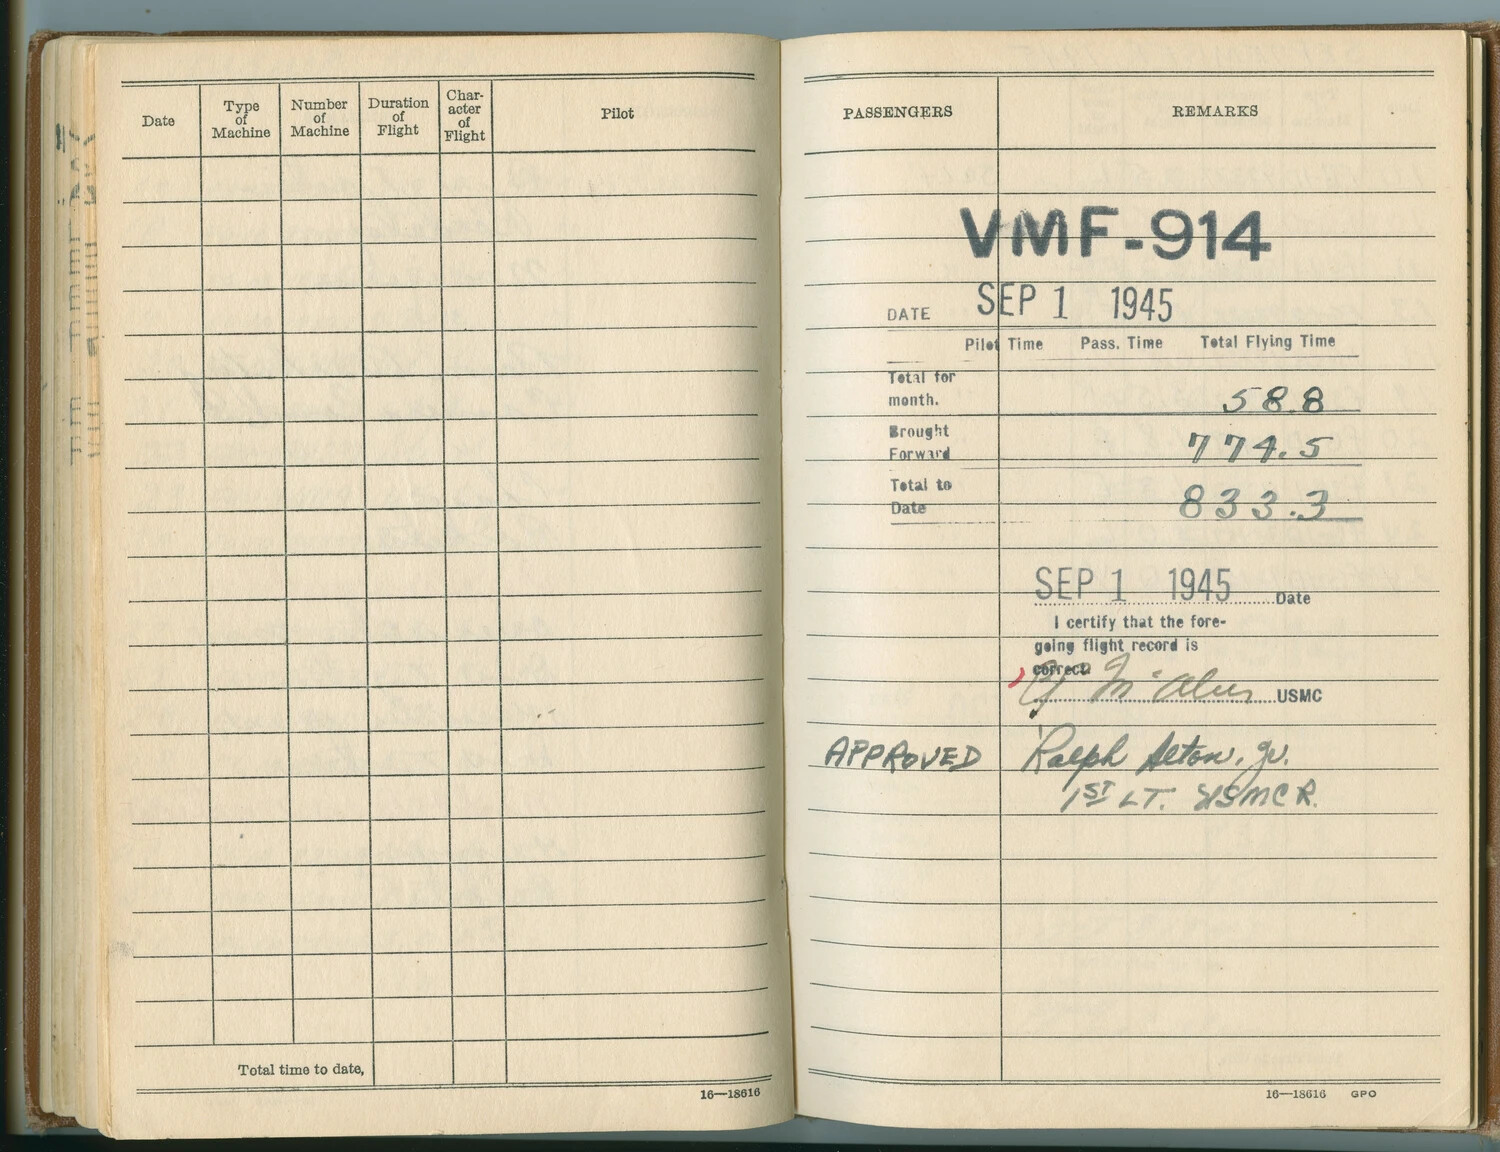 Date
Type of Machine
Number of Machine
Duration of Flight
Char-acter of Flight
Pilot
Total time to date,
16—18616
PASSENGERS
REMARKS
VMF-914
DATE SEP 1 1945
Pilot Time Pass. Time Total Flying Time
Total for
month. 58.8
Brought
Forward 774.5
Total to
Date 833.3
SEP 1 1945 Date
I certify that the fore-
going flight record is
correct.
USMC
APPROVED Ralph Jr.
1ST LT. USMCR.
16—18616 GPO